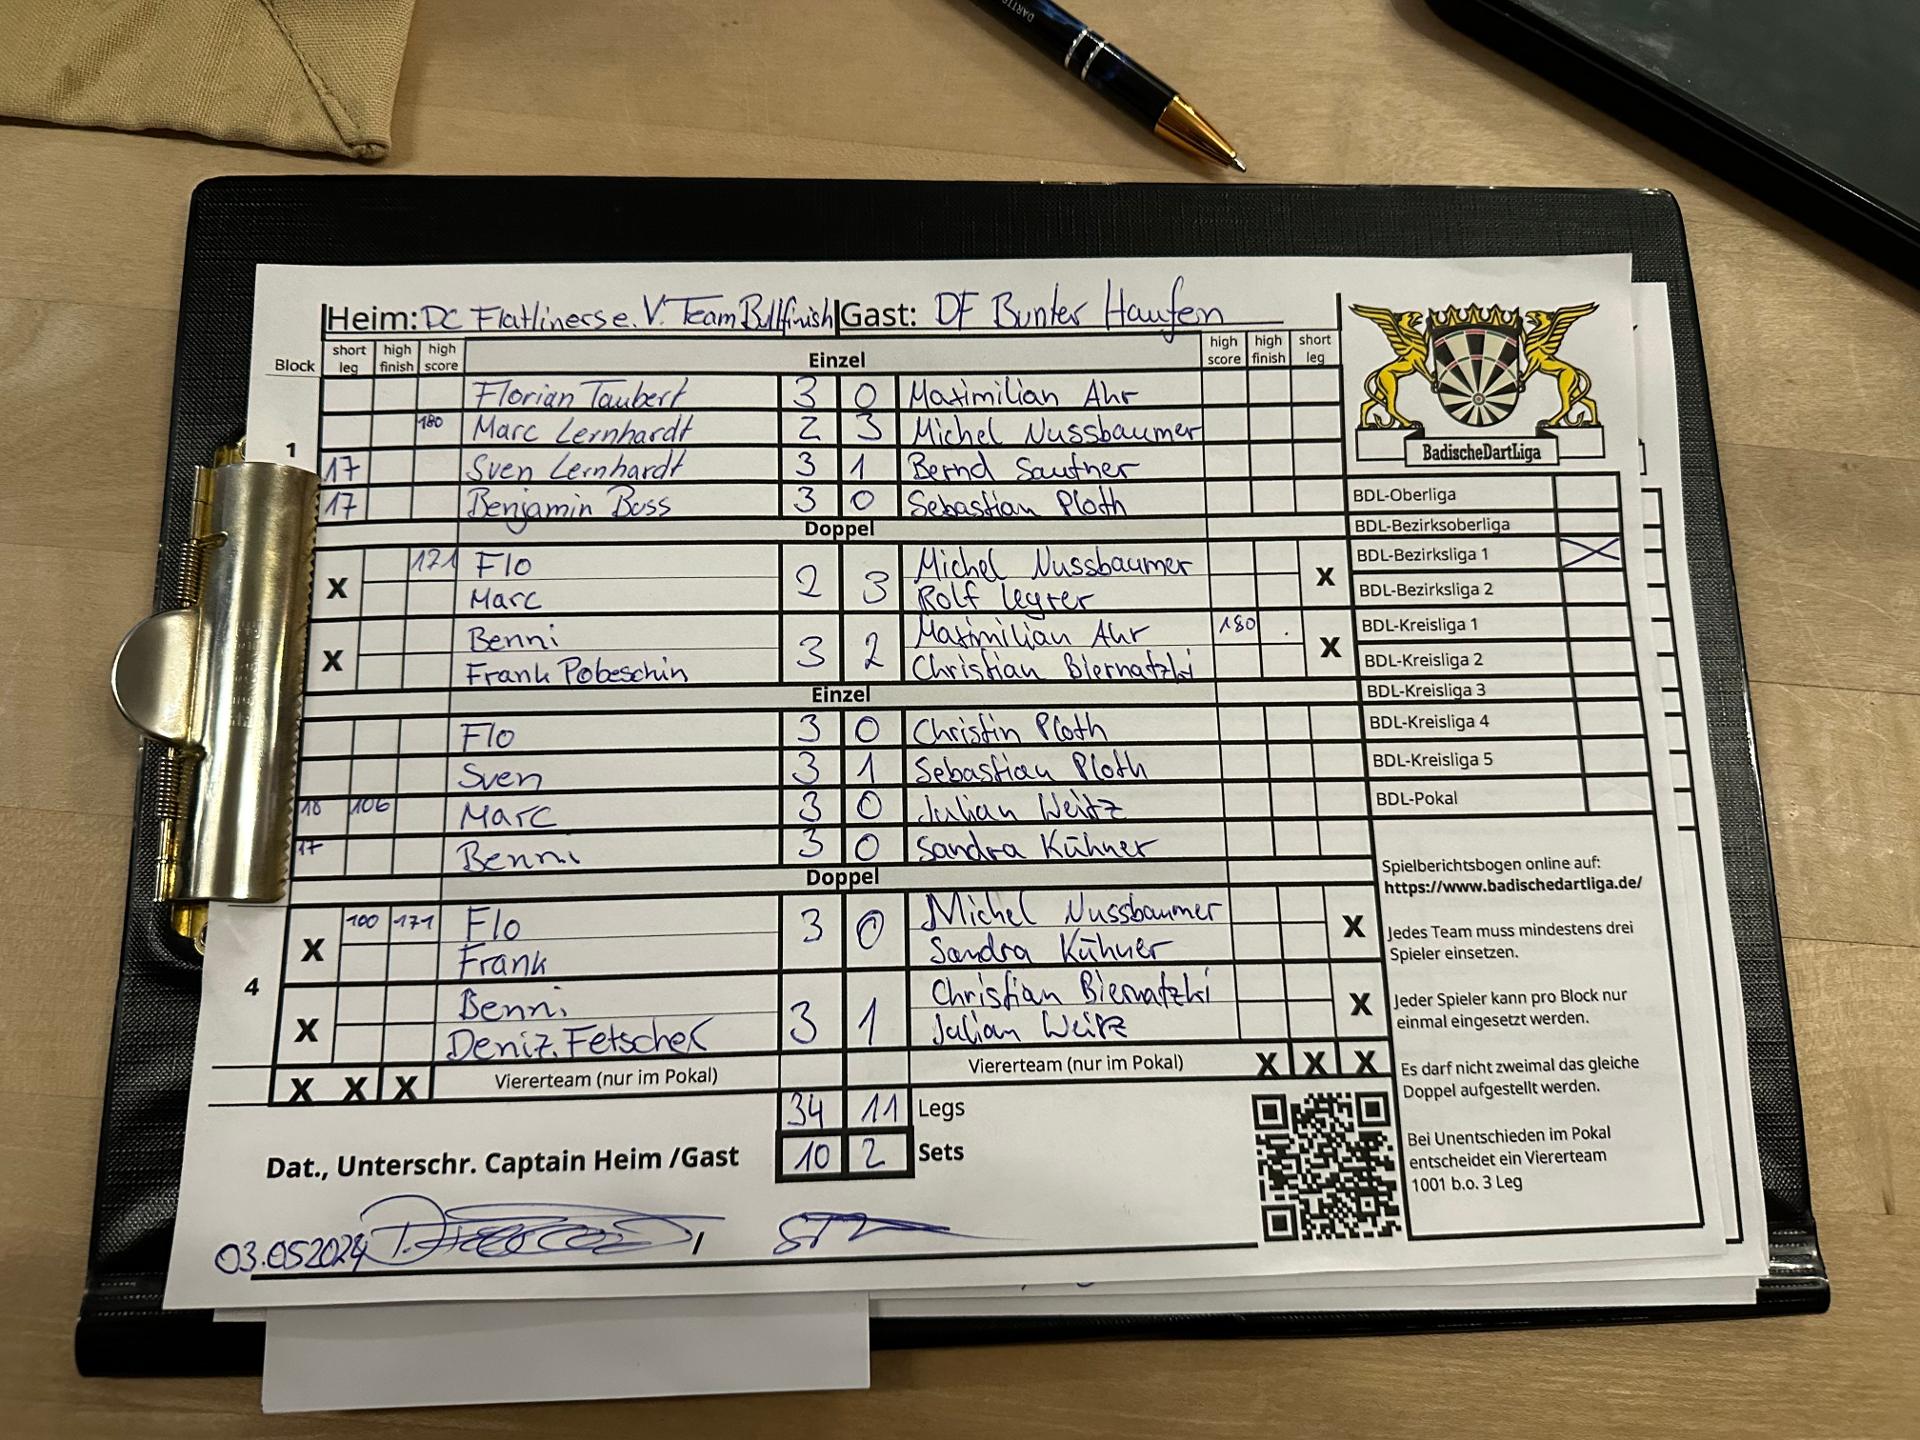 DARTS
Heim: DC Flatliners e. V. Team Bullfinish Gast: DF Bunter Haufen
Block short leg high finish high score Einzel high score high finish short leg
Florian Taubert 3 0 Maximilian Ahr
180 Marc Lernhardt 2 3 Michel Nussbaumer
1
17 Sven Lernhardt 3 1 Bernd Sautner
17 Benjamin Boss 3 0 Sebastian Ploth
Doppel
X 171 Flo 2 3 Michel Nussbaumer X
Marc Rolf
X Benni 3 2 Maximilian Ahr 180 X
Frank Pobeschin Christian Biernatzki
Einzel
Flo 3 0 Christin Ploth
Sven 3 1 Sebastian Ploth
18 106 Marc 3 0 Julian Weitz
17 Benni 3 0 Sandra Kühner
Doppel
X 100 171 Flo 3 0 Michel Nussbaumer X
Frank Sandra Kühner
4
X Benni 3 1 Christian Biernatzki X
Deniz Fetscher Julian Weitz
X X X Viererteam (nur im Pokal) Viererteam (nur im Pokal) X X X
34 11 Legs
Dat., Unterschr. Captain Heim /Gast 10 2 Sets
03.05.2024 /
BadischeDartLiga
BDL-Oberliga
BDL-Bezirksoberliga
BDL-Bezirksliga 1 X
BDL-Bezirksliga 2
BDL-Kreisliga 1
BDL-Kreisliga 2
BDL-Kreisliga 3
BDL-Kreisliga 4
BDL-Kreisliga 5
BDL-Pokal
Spielberichtsbogen online auf:
https://www.badischedartliga.de/
Jedes Team muss mindestens drei
Spieler einsetzen.
Jeder Spieler kann pro Block nur
einmal eingesetzt werden.
Es darf nicht zweimal das gleiche
Doppel aufgestellt werden.
Bei Unentschieden im Pokal
entscheidet ein Viererteam
1001 b.o. 3 Leg